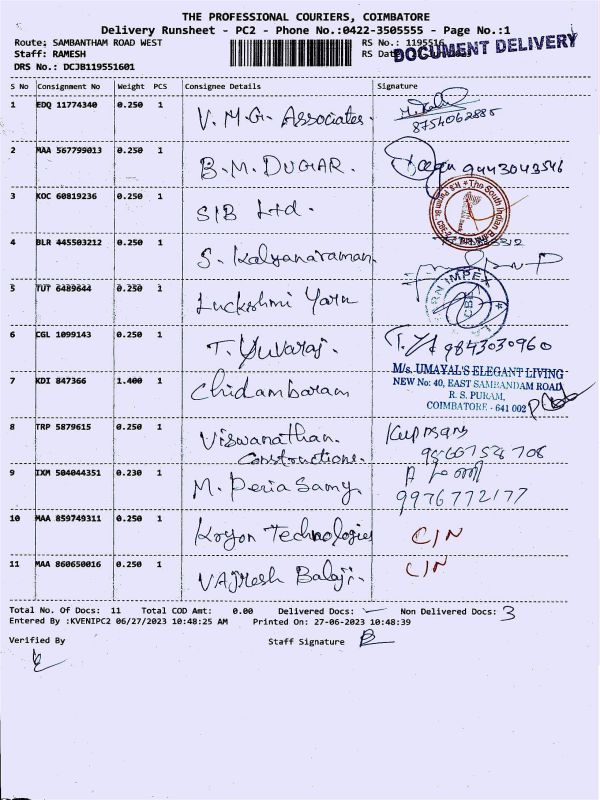 THE PROFESSIONAL COURIERS, COIMBATORE
Delivery Runsheet - PC2 - Phone No.:0422-3505555 - Page No.:1
Route: SAMBANTHAM ROAD WEST RS No.: 1195516
Staff: RAMESH RS Dat
DOCUMENT DELIVERY
DRS No.: DCJB119551601
S No Consignment No Weight PCS Consignee Details Signature
1 EDQ 11774340 0.250 1 V. M.G. Associates. 8754062885
2 MAA 567799013 0.250 1 B.M. DUGAR. 9443043546
3 KOC 60819236 0.250 1 SIB Ltd. The South Indian Bank
4 BLR 445503212 0.250 1 S. Kalyanaraman.
5 TUT 6489644 0.250 1 Luckshmi Yarn IMPEX CBE
6 CGL 1099143 0.250 1 T. Yuvaraj. 9843030960
7 KDI 847366 1.400 1 Chidambaram
M/s. UMAYAL'S ELEGANT LIVING
NEW No: 40, EAST SAMBANDAM ROAD
R. S. PURAM,
COIMBATORE - 641 002
8 TRP 5879615 0.250 1 Viswanathan. Constructions.
9 IXM 504044351 0.230 1 M. Peria Samy. 9976772177
10 MAA 859749311 0.250 1 Kryon Technologies C/N
11 MAA 860650016 0.250 1 VAJResh Balaji. C/N
Total No. Of Docs: 11 Total COD Amt: 0.00 Delivered Docs: Non Delivered Docs: 3
Entered By :KVENIPC2 06/27/2023 10:48:25 AM Printed On: 27-06-2023 10:48:39
Verified By Staff Signature